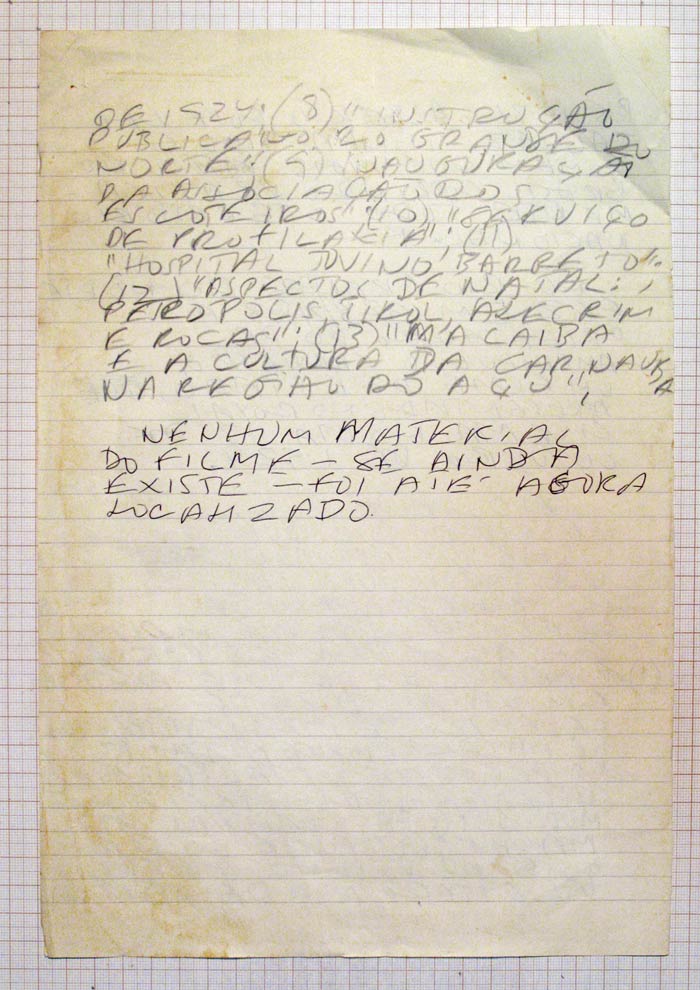 DE 1924; (8) "INSTRUÇÃO
PUBLICA NO RIO GRANDE DO
NORTE"; (9) INAUGURAÇÃO
DA ASSOCIAÇÃO DOS
ESCOTEIROS"; (10) "SERVIÇO
DE PROFILAXIA"; (11)
"HOSPITAL JUVINO BARRETO";
(12) "ASPECTOS DE NATAL:
PETROPOLIS, TIROL, ALECRIM
E ROCAS"; (13) "MACAIBA
E A CULTURA DA CARNAUBA
NA REGIÃO DO AÇU";
NENHUM MATERIAL
DO FILME – SE AINDA
EXISTE – FOI ATÉ AGORA
LOCALIZADO.